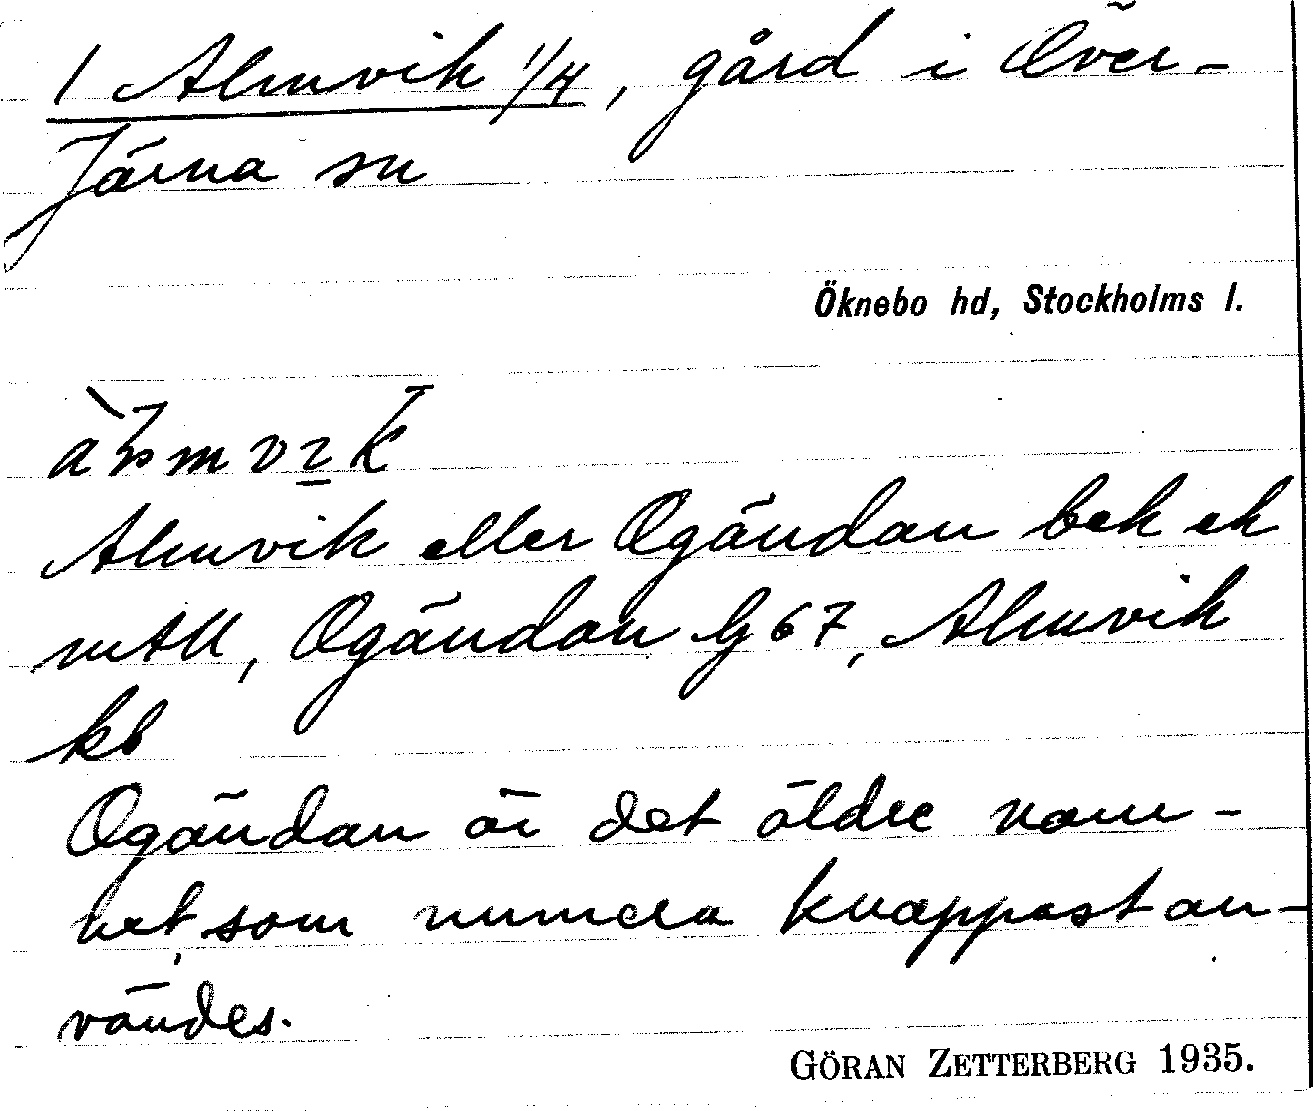 1 Almvik 1/4, gård i Över-
Järna sn
Öknebo hd, Stockholms l.
Almvik eller Ogändan bek ek
mtll, Ogändan G 67, Almvik
kb
Ogändan är det äldre nam-
net, som numera knappast an-
vändes.
GÖRAN ZETTERBERG 1935.